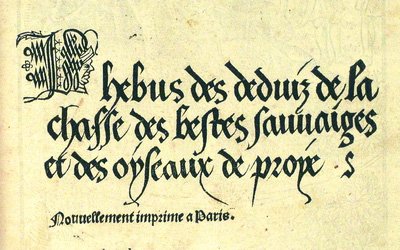 Phebus des deduiz de la
chasse des bestes sauuaiges
et des oyseaux de proye . s
Nouuellement imprime a Paris.